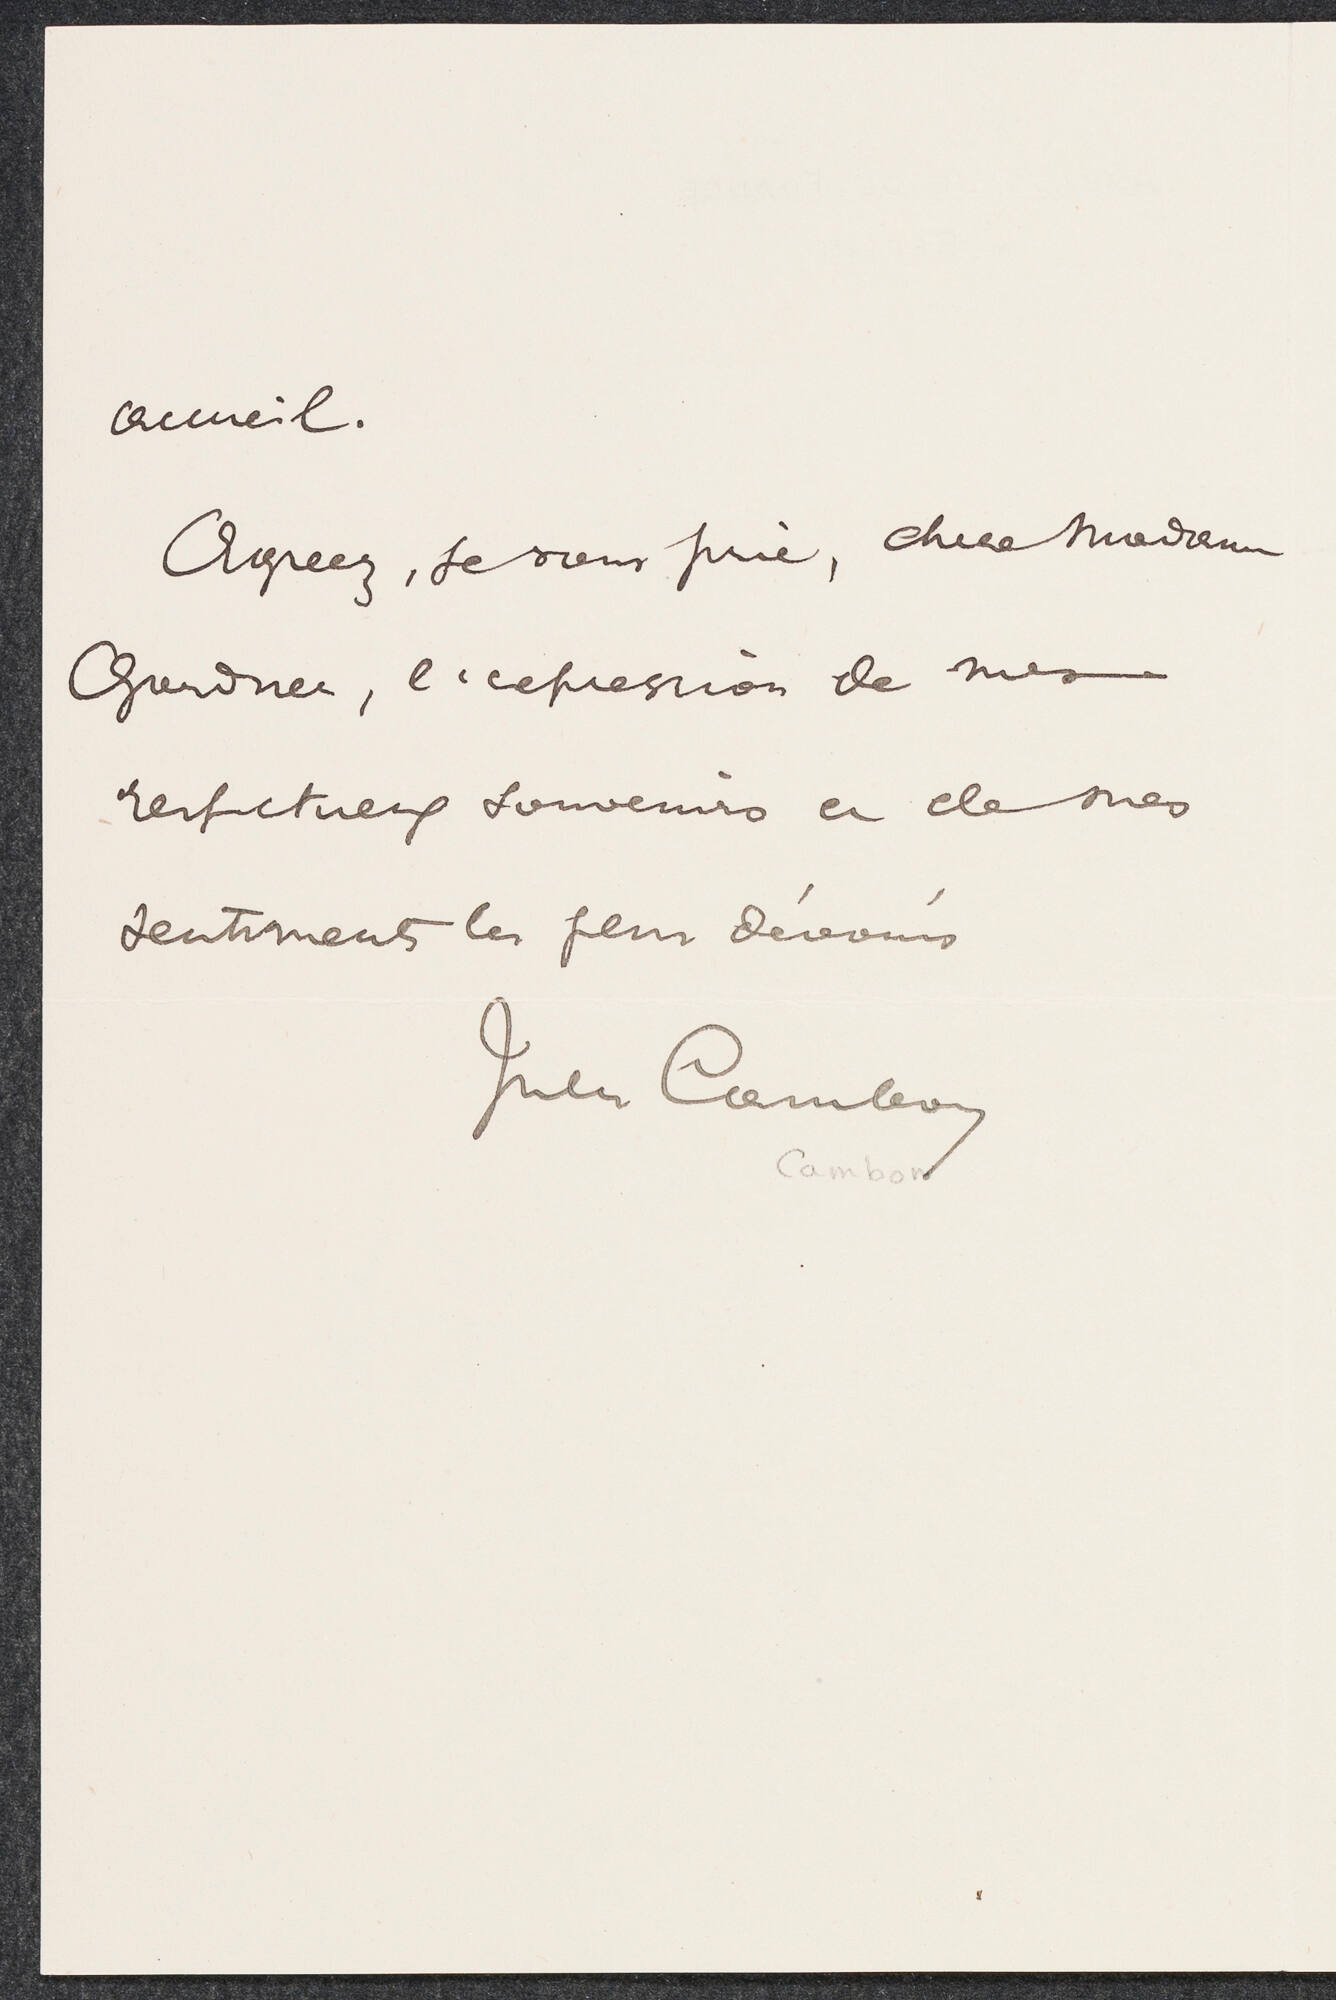 accueil.
Agréez, je vous prie, chère Madame
Gardner, l'expression de mes
respectueux souvenirs et de mes
sentiments les plus dévoués
Jules Cambon
Cambon